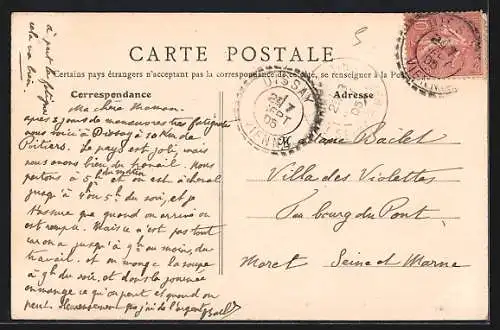 CARTE POSTALE
Certains pays étrangers n'acceptant pas la correspondance de ce côté, se renseigner à la Poste
Correspondance
Adresse
Ma chère Maman.
après 2 jours de manœuvres très fatigantes
nous voici à Dissay à 20 Km de
Poitiers. Le pays est joli mais
nous avons bien du travail. Nous
partons à 5h du matin et on est à cheval
jusqu'à 4h ou 5h du soir, et je
t'assure que quand on arrive on
est rompu. Mais ce n'est pas tout
car on a jusqu'à 9h au moins, du
travail. et on mange la soupe
à 9h du soir. et dans la journée
on mange ce qu'on peut et quand on
peut. Heureusement que j'ai de l'argent
à part la fatigue
cela va bien.
DISSAY
24 / 7
SEPT
05
VIENNE
Madame Bailet
Villa des Violettes
Faubourg du Pont
Moret Seine et Marne